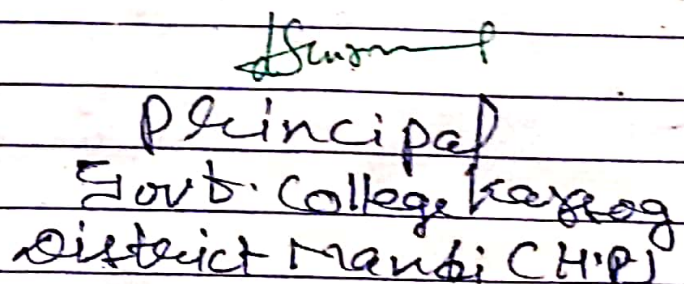 Principal
Govt. College Karsog
District Mandi (H.P)